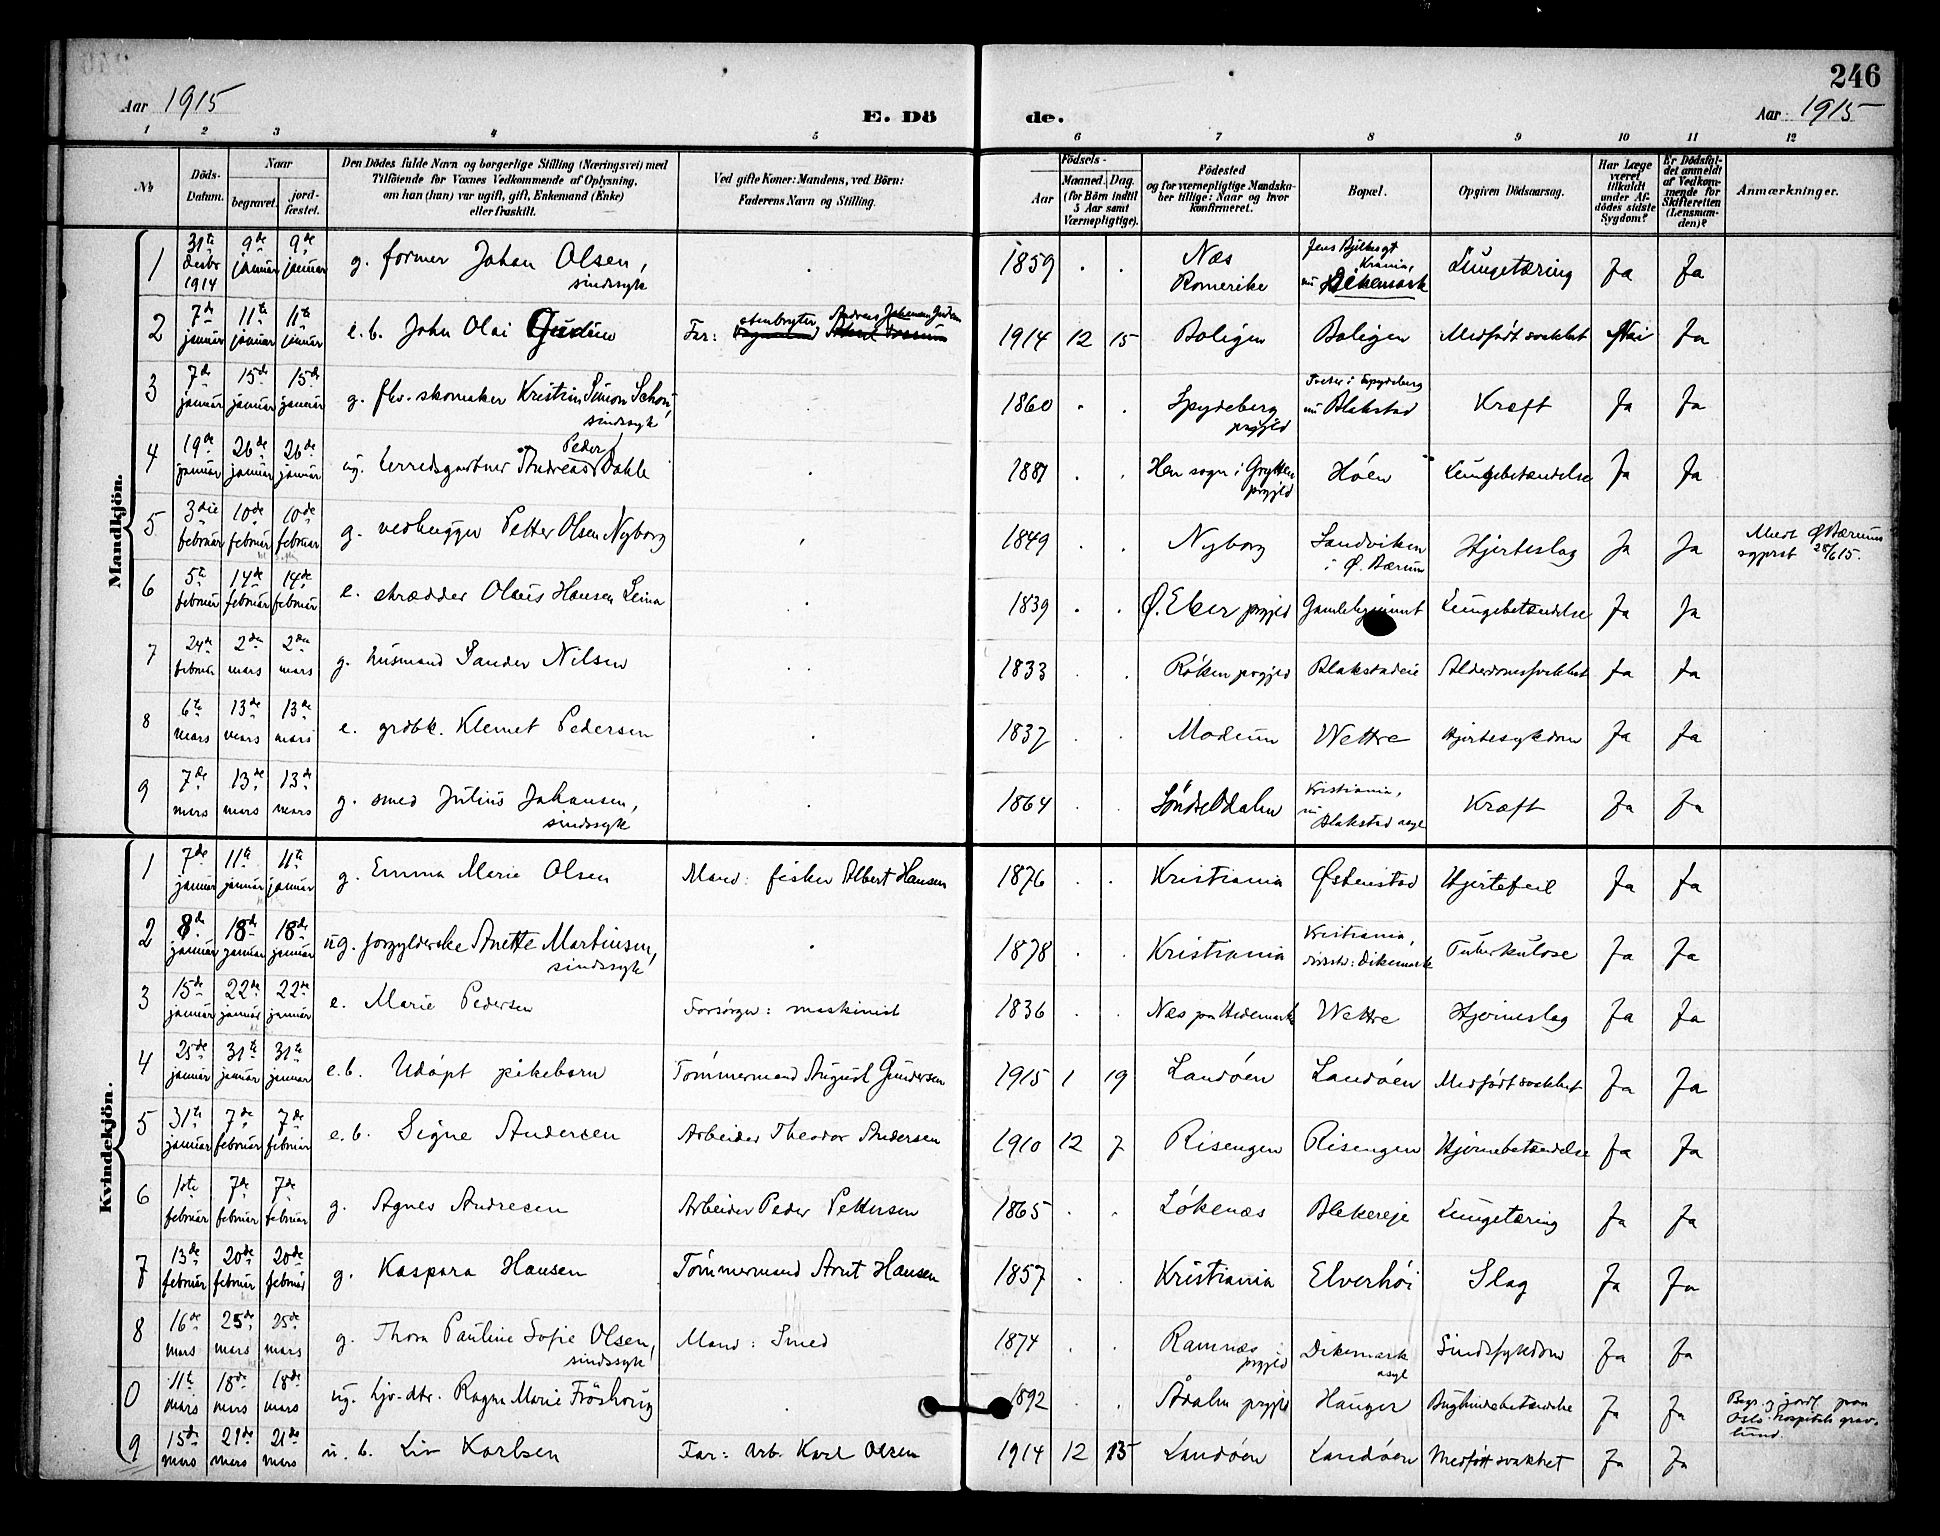 246
Aar 1915
E. Döde.
Aar 1915
1 2 3 4 5 6 7 8 9 10 11 12
No
Döds-Datum.
Naar
begravet.
jordfæstet.
Den Dödes fulde Navn og borgerlige Stilling (Næringsvei) med
Tilföiende for Voxnes Vedkommende af Oplysning,
om han (hun) var ugift, gift, Enkemand (Enke)
eller fraskilt.
Ved gifte Koner: Mandens, ved Börn:
Faderens Navn og Stilling.
Födsels-
Aar
Maaned. Dag.
(for Börn indtil
5 Aar samt
Værnepligtige).
Födested
og for værnepligtige Mandska-
ber tillige: Naar og hvor
konfirmeret.
Bopæl.
Opgiven Dödsaarsag.
Har Læge
været
tilkaldt
under Af-
dödes sidste
Sygdom?
Er Dödsfal-
det anmeldt
af Vedkom-
mende for
Skifteretten
(Lensman-
den)?
Anmærkninger.
Mandkjön.
1 31te decbr 1914 9de januar 9de januar g. former Johan Olsen, sindssyk 1859 Næs Romerike Krania, nu Dikemark Lungetæring Ja Ja
2 7de januar 11te januar 11te januar e.b. John Olai Gudim Far: stenbryter Andreas Johansen Gudim 1914 12 15 Boligen Boligen Medfødt svakhet Nei Ja
3 7de januar 15de januar 15de januar g. fhv. skomaker Kristian Simon Schou, sindssyk 1860 Spydeberg prgjld i Spydeberg nu Blakstad Kræft Ja Ja
4 19de januar 26de januar 26de januar ug. Andreas Peder Dahle 1881 Hen sogn i Grytten prgjld Höen Lungebetændelse Ja Ja
5 3die februar 10de februar 10de februar g. vedhugger Petter Olsen Nyborg 1849 Nyborg Sandviken i Ø. Bærum Hjerteslag Ja Ja Medt Ø Bærums sgprst 28/6 15.
6 5te februar 14de februar 14de februar e. skrædder Olaus Hansen Leina 1839 Ø. Eker prgjld Lungebetændelse Ja Ja
7 24de februar 2den mars 2den mars g. husmand Sander Nilsen 1833 Röken prgjld Blakstadeie Alderdomssvakhet Ja Ja
8 6te mars 13de mars 13de mars e. grdbk. Klemet Pedersen 1837 Modum Wettre Hjertesykdom Ja Ja
9 7de mars 13de mars 13de mars g. smed Julius Johansen, sindssyk 1864 Söndre Odalen Kristiania, nu Blakstad asyl Kræft Ja Ja
Kvindekjön.
1 7de januar 11te januar 11te januar g. Emma Marie Olsen Mand: fisker Albert Hansen 1876 Kristiania Østenstad Hjertefeil Ja Ja
2 8de januar 18de januar 18de januar ug. forgylderske Anette Martinsen, sindssyk 1878 Kristiania Kristiania, Dikemark Tuberkulose Ja Ja
3 15de januar 22de januar 22de januar e. Marie Pedersen Forsörger: maskinist 1836 Næs paa Hedemark Wettre Hjerneslag Ja Ja
4 25de januar 31te januar 31te januar e.b. Udöpt pikebarn Tömmermand August Gundersen 1915 1 19 Landöen Landöen Medfödt svakhet Ja Ja
5 31te januar 7de februar 7de februar e.b. Signe Andersen Arbeider Theodor Andersen 1910 12 7 Risengen Risengen Hjernebetændelse Ja Ja
6 1ste februar 7de februar 7de februar g. Agnes Andresen Arbeider Peder Pettersen 1865 Lökenæs Blekereje Lungetæring Ja Ja
7 13de februar 20de februar 20de februar g. Kaspara Hansen Tömmermand Arnt Hansen 1857 Kristiania Elverhöi Slag Ja Ja
8 16de mars 25de mars 25de mars g. Thora Pauline Sofie Olsen, sindssyk Mand: Smed 1874 Ramnæs prgjld Dikemark asyl Sindssykdom Ja Ja
0 11te mars 18de mars 18de mars ug. Ragna Marie Fröshoug 1892 Ådalen prgjld Hauger Bughindebetændelse Ja Ja Begr. og jordf. paa Oslo hospitals gravlund.
9 15de mars 21de mars 21de mars u.b. Liv Karlsen Far: arb. Karl Olsen 1914 12 13 Landöen Landöen Medfödt svakhet Ja Ja